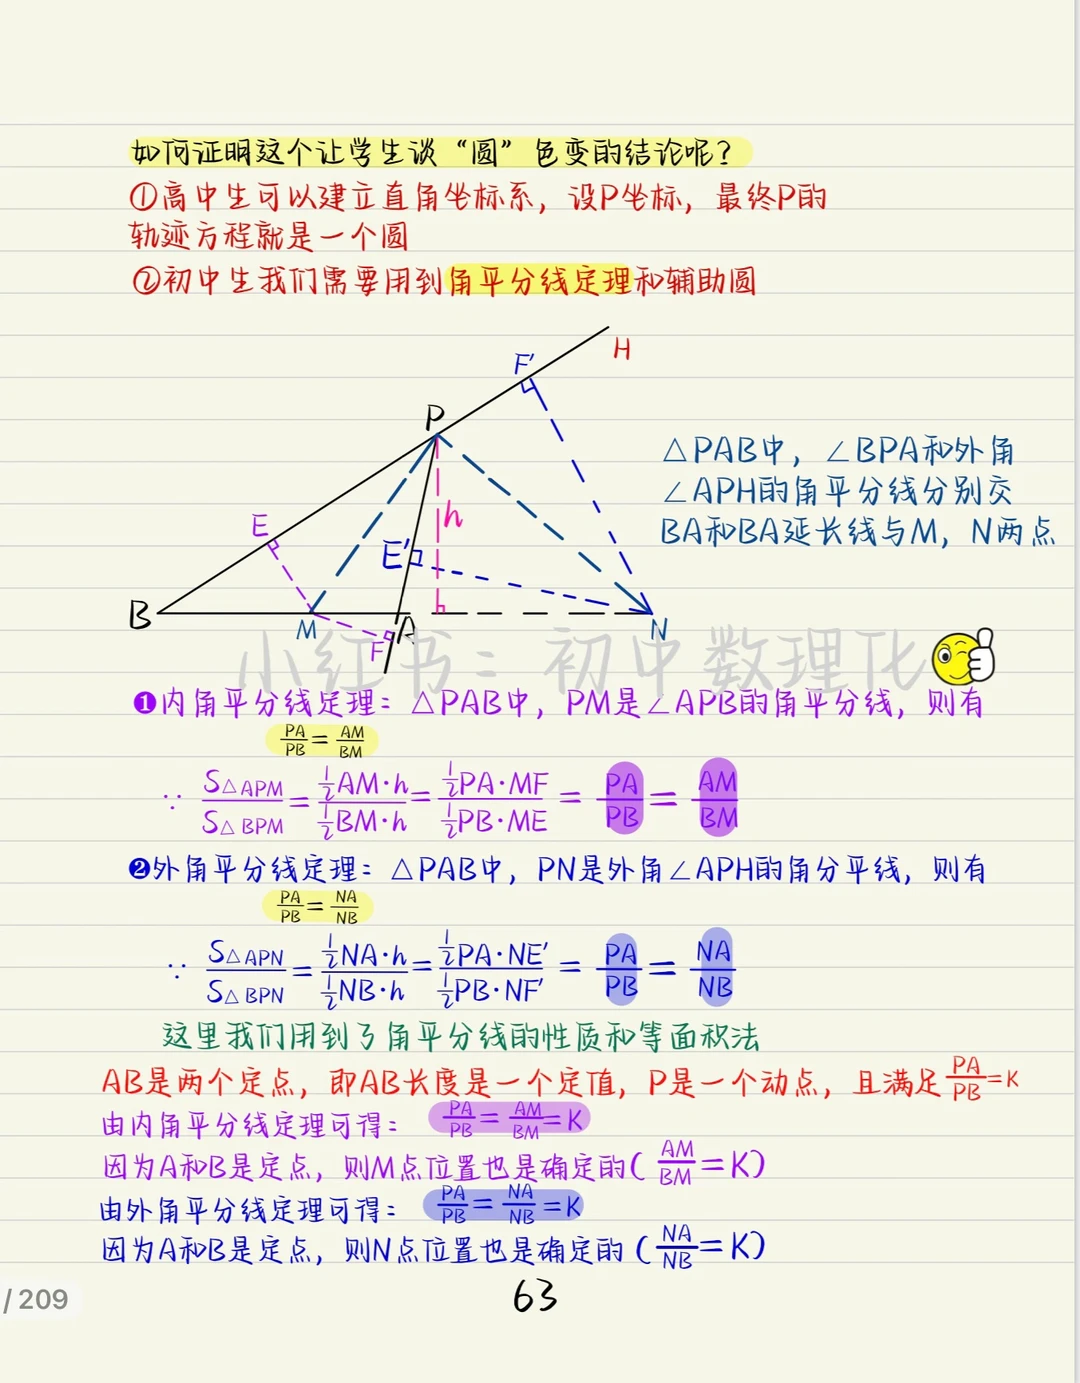 如何证明这个让学生谈“圆”色变的结论呢？
①高中生可以建立直角坐标系，设P坐标，最终P的
轨迹方程就是一个圆
②初中生我们需要用到角平分线定理和辅助圆
H
F'
P
△PAB中，∠BPA和外角
∠APH的角平分线分别交
BA和BA延长线与M，N两点
E
h
E'
B
M
F
A
N
小红书：初中数理化
❶内角平分线定理：△PAB中，PM是∠APB的角平分线，则有
PA/PB=AM/BM
∵ S△APM/S△BPM=½AM·h/½BM·h=½PA·MF/½PB·ME=PA/PB=AM/BM
❷外角平分线定理：△PAB中，PN是外角∠APH的角分平线，则有
PA/PB=NA/NB
∵ S△APN/S△BPN=½NA·h/½NB·h=½PA·NE'/½PB·NF'=PA/PB=NA/NB
这里我们用到了角平分线的性质和等面积法
AB是两个定点，即AB长度是一个定值，P是一个动点，且满足PA/PB=K
由内角平分线定理可得：PA/PB=AM/BM=K
因为A和B是定点，则M点位置也是确定的(AM/BM=K)
由外角平分线定理可得：PA/PB=NA/NB=K
因为A和B是定点，则N点位置也是确定的(NA/NB=K)
/209
63